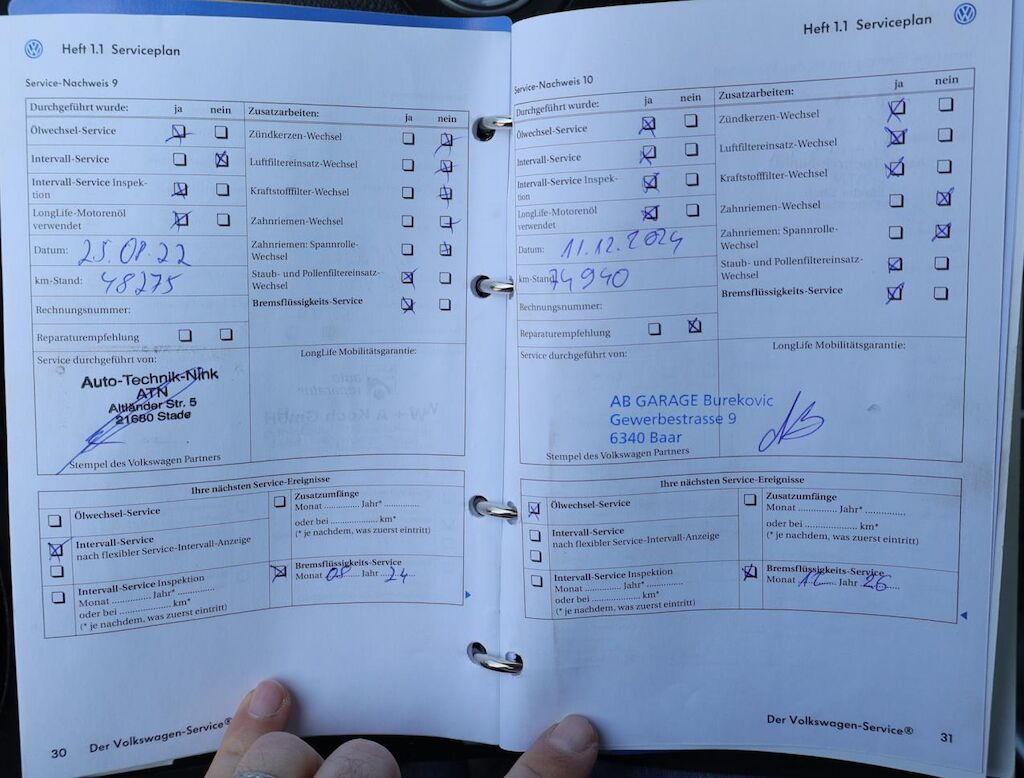 Heft 1.1 Serviceplan
Service-Nachweis 9
Durchgeführt wurde: ja nein
Ölwechsel-Service
Intervall-Service
Intervall-Service Inspek-
tion
LongLife-Motorenöl
verwendet
Datum: 25.08.22
km-Stand: 48275
Rechnungsnummer:
Reparaturempfehlung
Zusatzarbeiten: ja nein
Zündkerzen-Wechsel
Luftfiltereinsatz-Wechsel
Kraftstofffilter-Wechsel
Zahnriemen-Wechsel
Zahnriemen: Spannrolle-
Wechsel
Staub- und Pollenfiltereinsatz-
Wechsel
Bremsflüssigkeits-Service
Service durchgeführt von:
Auto-Technik-Nink
ATN
Altländer Str. 5
21680 Stade
Stempel des Volkswagen Partners
LongLife Mobilitätsgarantie:
Ihre nächsten Service-Ereignisse
Ölwechsel-Service
Intervall-Service
nach flexibler Service-Intervall-Anzeige
Intervall-Service Inspektion
Monat .............. Jahr* ..............
oder bei ...................... km*
(* je nachdem, was zuerst eintritt)
Zusatzumfänge
Monat ............. Jahr* .............
oder bei ...................... km*
(* je nachdem, was zuerst eintritt)
Bremsflüssigkeits-Service
Monat 08 Jahr 24
30 Der Volkswagen-Service®
Heft 1.1 Serviceplan
Service-Nachweis 10
Durchgeführt wurde: ja nein
Ölwechsel-Service
Intervall-Service
Intervall-Service Inspek-
tion
LongLife-Motorenöl
verwendet
Datum: 11.12.2024
km-Stand 74940
Rechnungsnummer:
Reparaturempfehlung
Zusatzarbeiten: ja nein
Zündkerzen-Wechsel
Luftfiltereinsatz-Wechsel
Kraftstofffilter-Wechsel
Zahnriemen-Wechsel
Zahnriemen: Spannrolle-
Wechsel
Staub- und Pollenfiltereinsatz-
Wechsel
Bremsflüssigkeits-Service
Service durchgeführt von:
AB GARAGE Burekovic
Gewerbestrasse 9
6340 Baar
Stempel des Volkswagen Partners
LongLife Mobilitätsgarantie:
Ihre nächsten Service-Ereignisse
Ölwechsel-Service
Intervall-Service
nach flexibler Service-Intervall-Anzeige
Intervall-Service Inspektion
Monat .............. Jahr* ..............
oder bei ...................... km*
(* je nachdem, was zuerst eintritt)
Zusatzumfänge
Monat .............. Jahr* ..............
oder bei ...................... km*
(* je nachdem, was zuerst eintritt)
Bremsflüssigkeits-Service
Monat 12 Jahr 26
Der Volkswagen-Service® 31